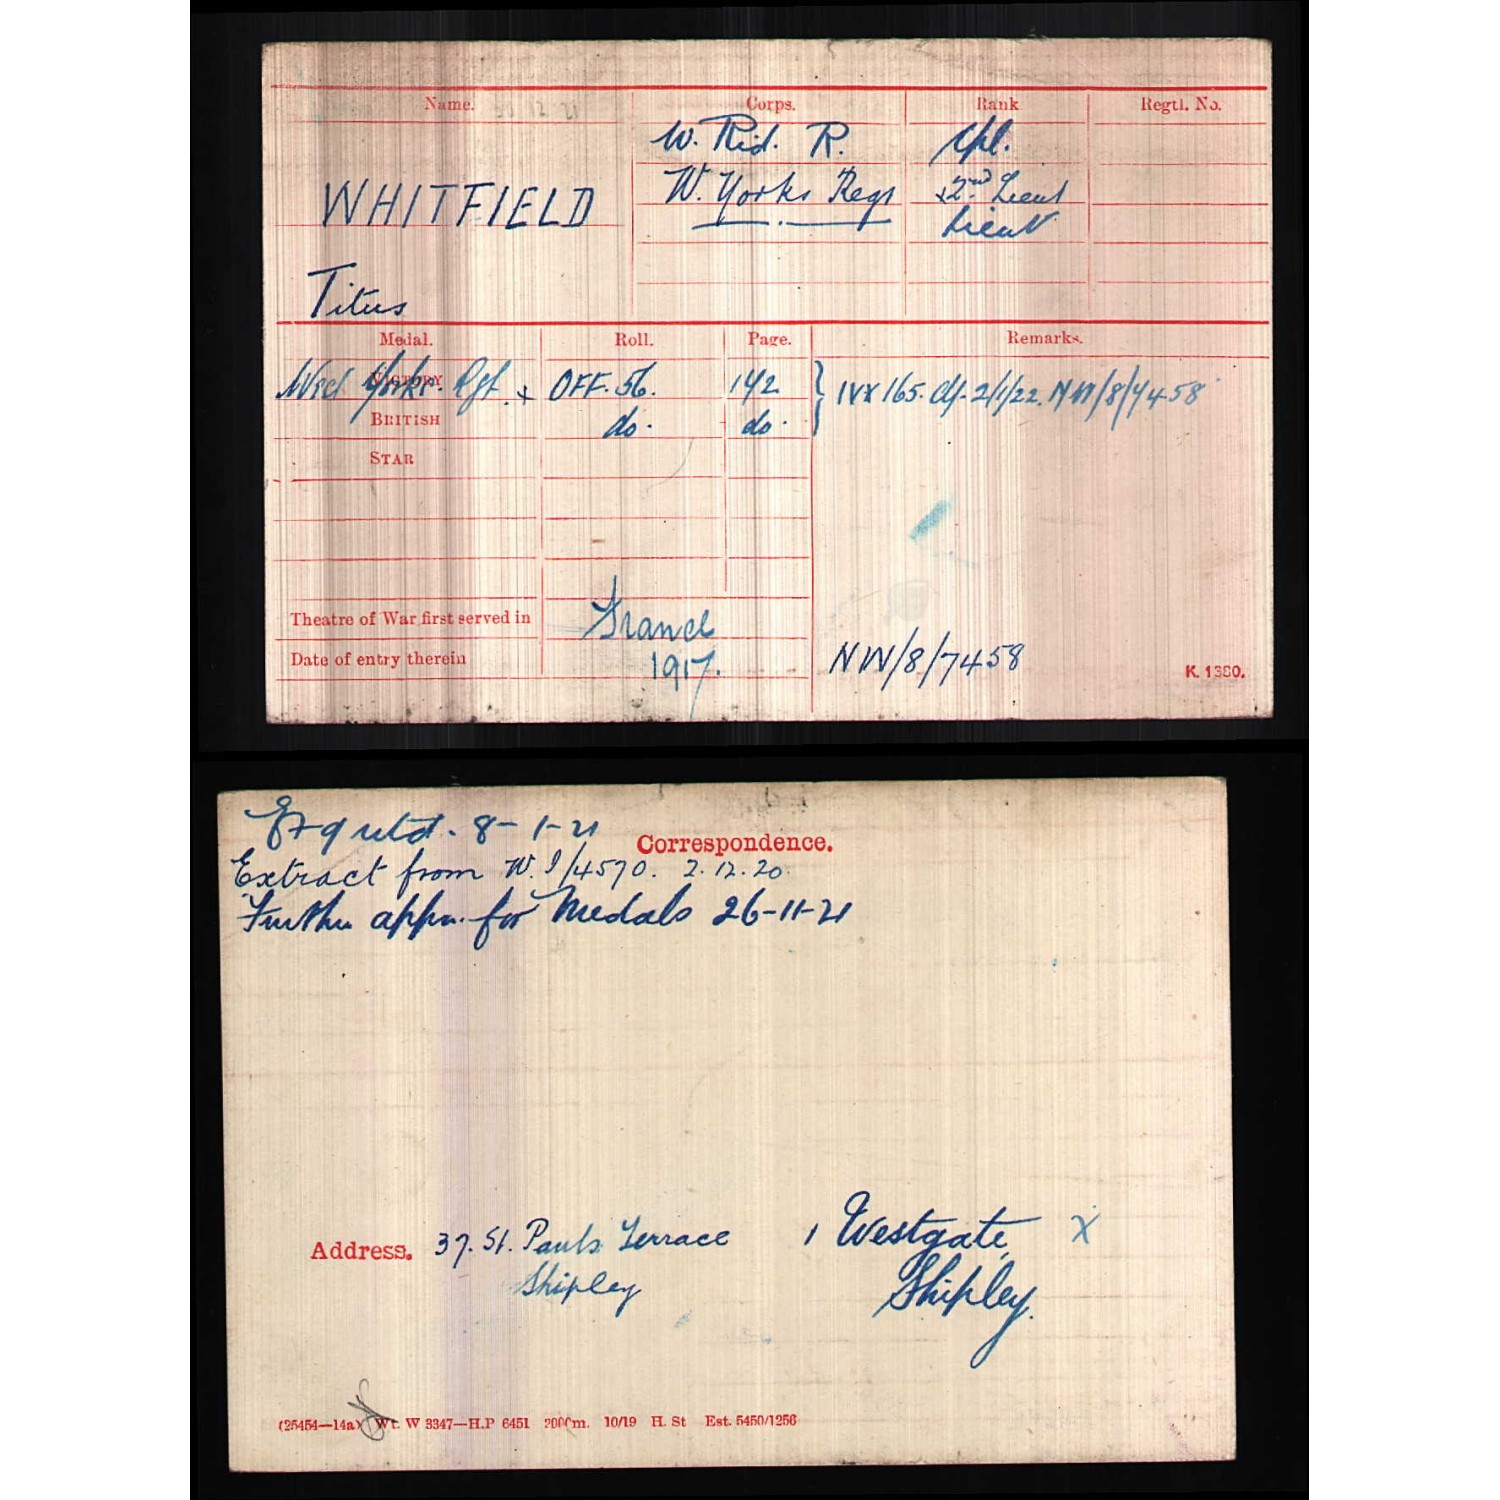 Name. Corps. Rank Regtl. No.
W. Rid. R. Cpl.
WHITFIELD W. Yorks Regt 2nd Lieut
Lieut
Titus
Medal. Roll. Page. Remarks.
West Yorks. Rgt. x VICTORY OFF. 56. 142 } IVX 165. d/- 2/1/22. NW/8/7458
BRITISH do. do.
STAR
Theatre of War first served in France
Date of entry therein 1917. NW/8/7458 K. 1380.
8-1-21
Correspondence.
Extract from W.I/4570. 2.12.20.
Further appn. for Medals 26-11-21
Address. 37. St. Pauls Terrace 1 Westgate, X
Shipley Shipley.
(25454—14a) Wt. W 3347—H.P 6451 2000m. 10/19 H. St Est. 5450/1256